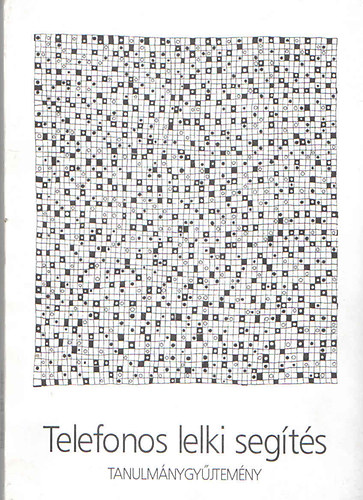 Telefonos lelki segítés
TANULMÁNYGYŰJTEMÉNY